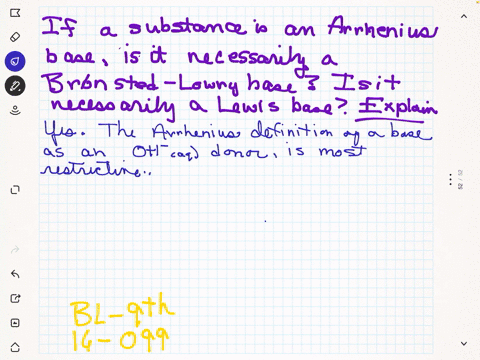 If a substance is an Arrhenius
base, is it necessarily a
Brönsted-Lowry base? Is it
necessarily a Lewis base? Explain
Yes. The Arrhenius definition of a base
as an OH⁻(aq) donor, is most
restrictive..
BL-9th
16-099